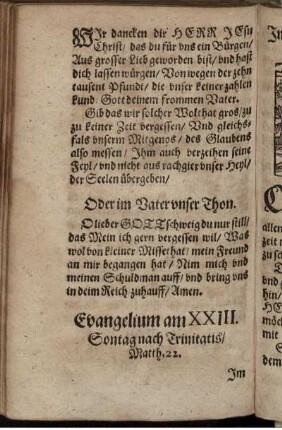 WIr dancken dir HERR JEsu
Christ/ das du für vns ein Bürgen/
Aus grosser Lieb geworden bist/ vnd hast
dich lassen würgen/ Von wegen der zehn
tausent Pfundt/ die vnser keiner zahlen
kund Gott deinem frommen Vater.
Gib das wir solcher Wolthat gros/ zu
zu keiner Zeit vergessen/ Vnd gleichs-
fals vnserm Mitgenos/ des Glaubens
also messen/ Ihm auch verzeihen seine
Feyl/ vnd nicht aus rachgier vnser Heyl/
der Seelen übergeben/
Oder im Vater vnser Thon.
O lieber GOTT schweig du nur still/
das Mein ich gern vergessen wil/ Was
wol von kleiner Missethat/ mein Freund
an mir begangen hat/ Nim mich vnd
meinen Schuldman auff/ vnd bring vns
in deim Reich zuhauff/ Amen.
Evangelium am XXIII.
Sontag nach Trinitatis/
Matth. 22.
Im